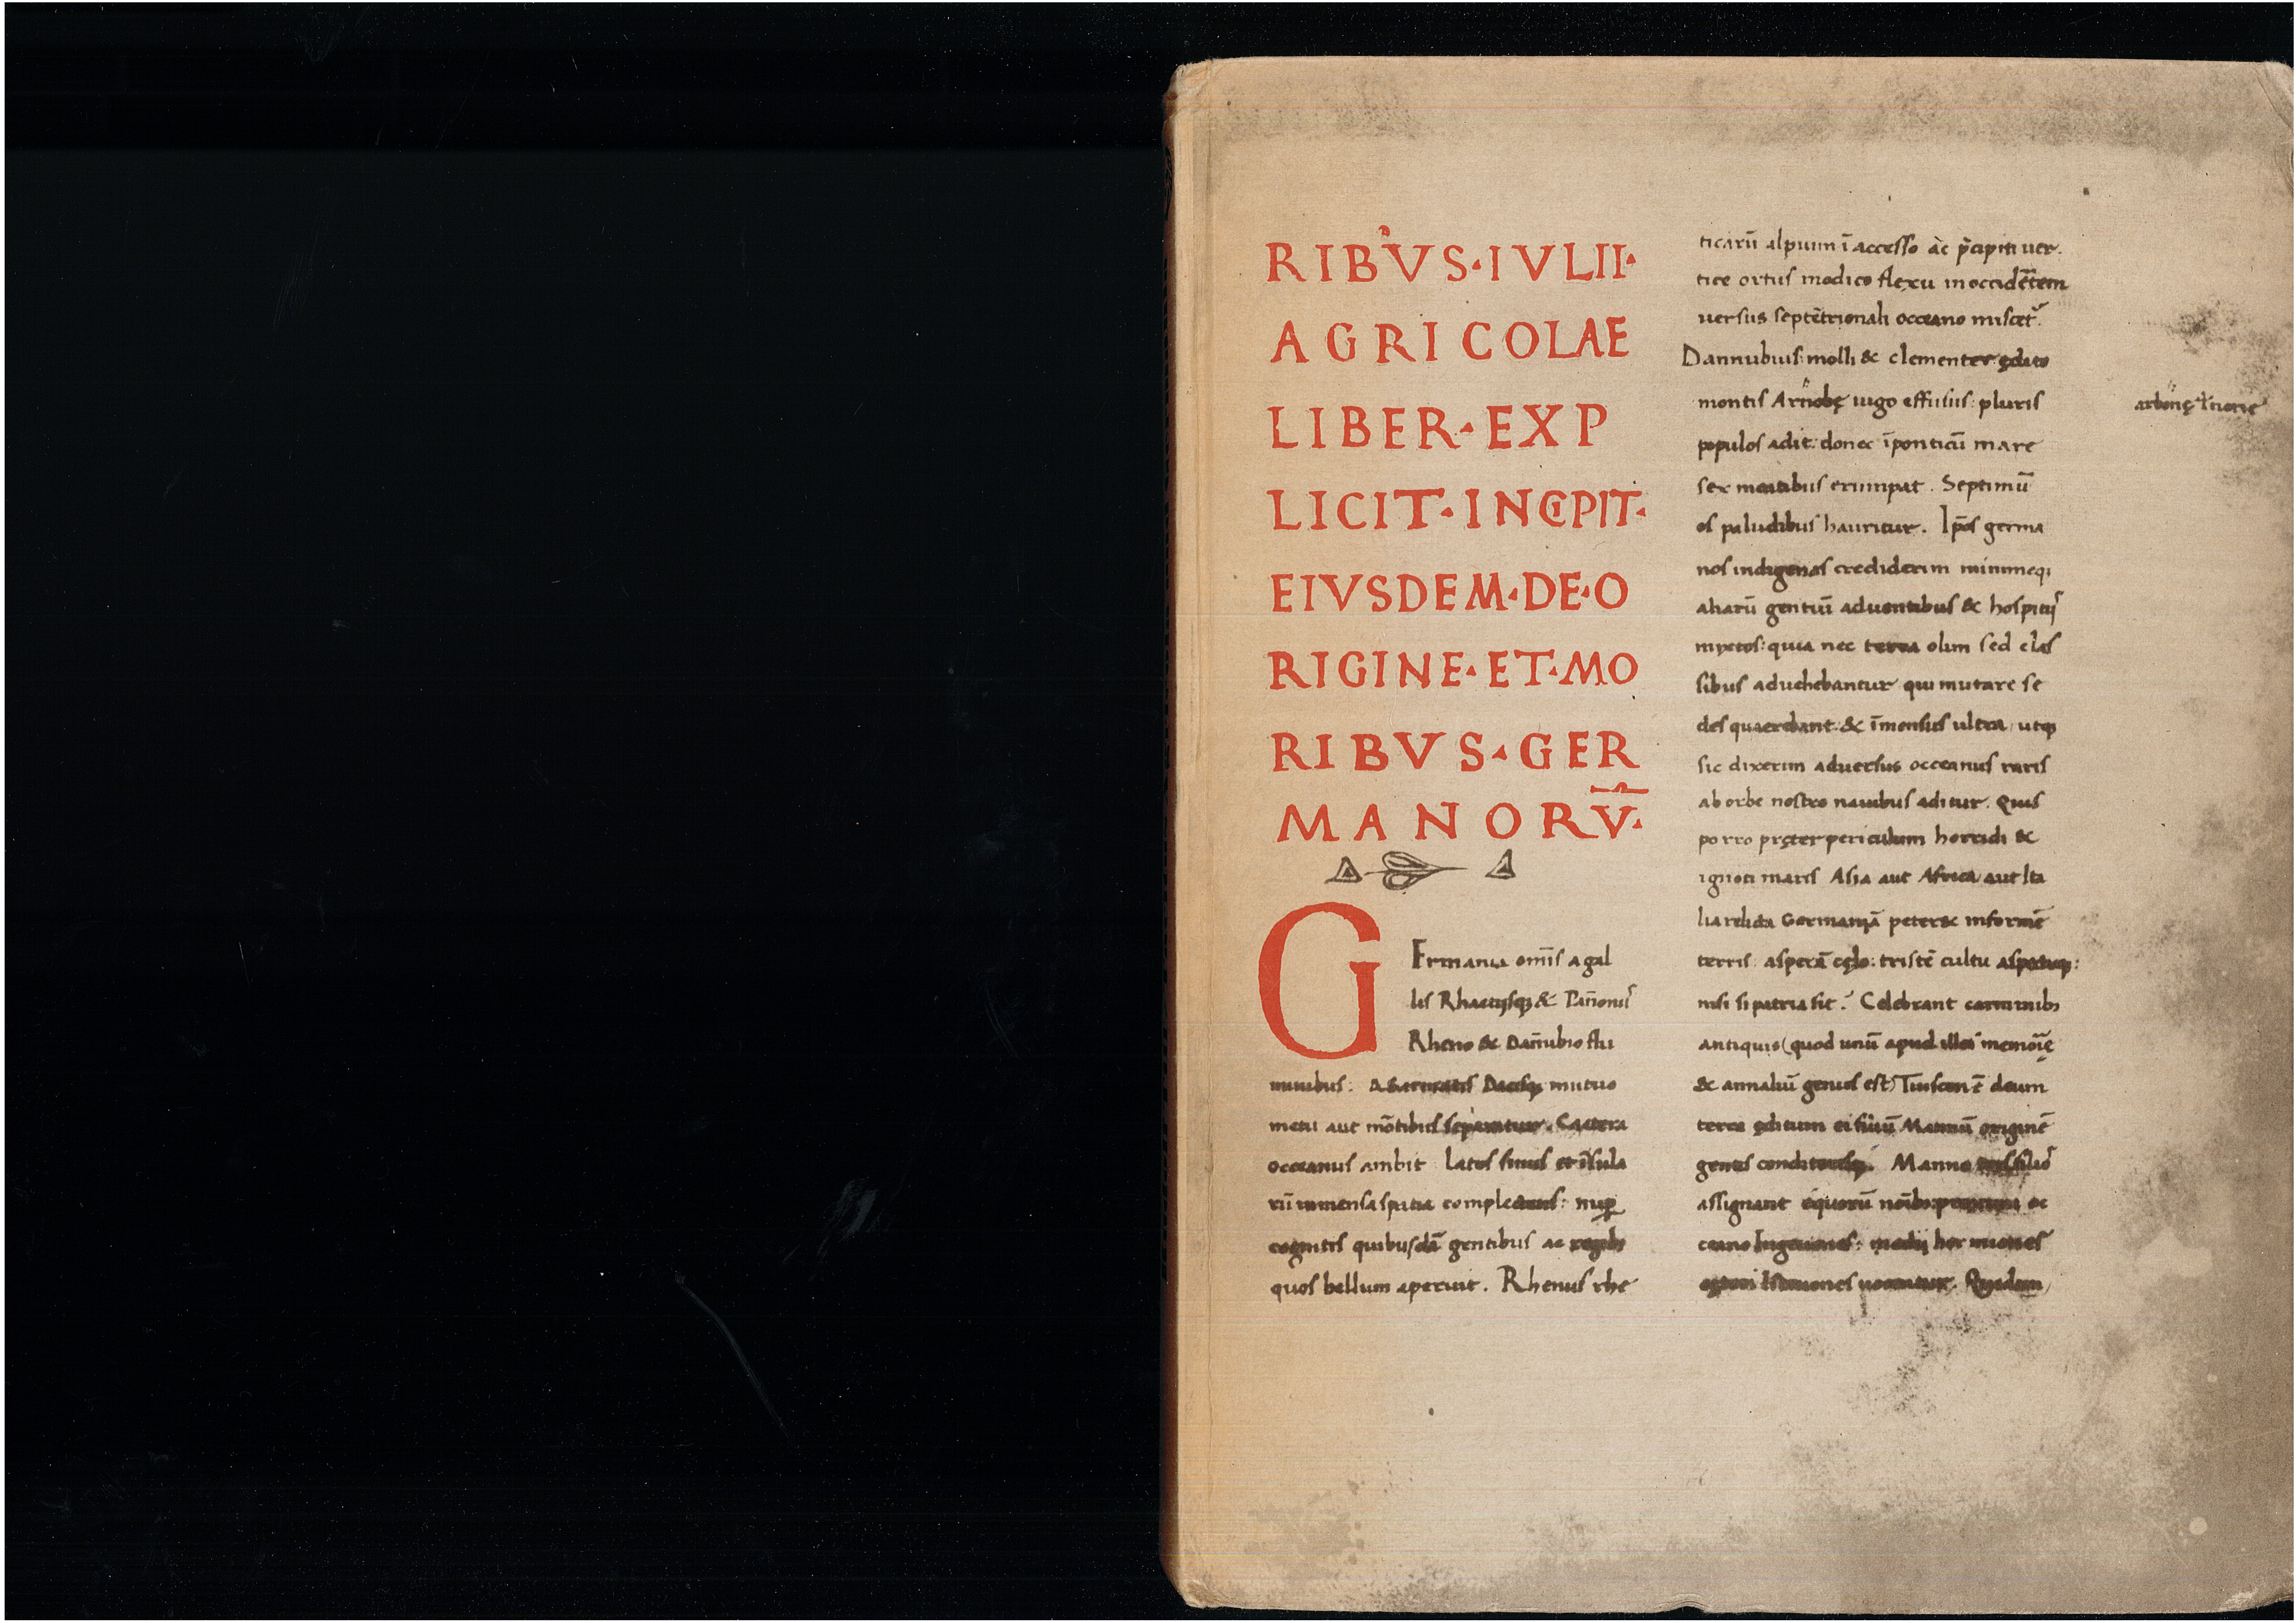 RIBVS·IVLII·
AGRICOLAE
LIBER·EXP
LICIT·INCIPIT·
EIVSDEM·DE·O
RIGINE·ET·MO
RIBVS·GER
MANORV̄·
GErmania om̄is a gal
lis Rhaetijsq; & Pan̄onijs
Rheno & Dan̄ubio flu
minibus: A Sarmatis Dacisq; mutuo
metu aut mōtibus separatur. Caetera
occeanus ambit Latos sinus et īsula
rū immensa spatia complectens: nup̱
cognitis quibusdā gentibus ac regib;
quos bellum aperuit. Rhenus rhe
ticarū alpium īaccesso ac p̄cipiti uer
tice ortus modico flexu in occidētem
uersus septētrionali occeano miscet᷑.
Dannubius: molli & clementer ędito
montis Arnobę iugo effusus: pluris
populos adit: donec ī ponticū mare
sex meatibus erumpat. Septimū
os paludibus hauritur. Ip̄os germa
nos indigenas crediderim minimeq;
aliarū gentiū aduentibus & hospitijs
myxtos: quia nec terra olim sed clas
sibus aduehebantur qui mutare se
des quaerebant: & īmensus ultra, utq;
sic dixerim aduersus occeanus raris
ab orbe nostro nauibus aditur. Quis
porro pręter periculum horridi &
ignoti maris Asia aut Africa, aut Ita
lia relicta Germaniā peteret informē
terris asperā cęlo: tristē cultu aspectuq;:
nisi si patria sit? Celebrant carminib;
antiquis (quod unū apud illos memorię
& annaliū genus est) Tuisconē deum
terra editum ei filiū Mannū originē
gentis conditorisq;. Manno tris filios
assignant equorū noīb; proximi oc
ceano Ingeuones: medij hermiones
cęteri Istaeuones uocantur. Quidam